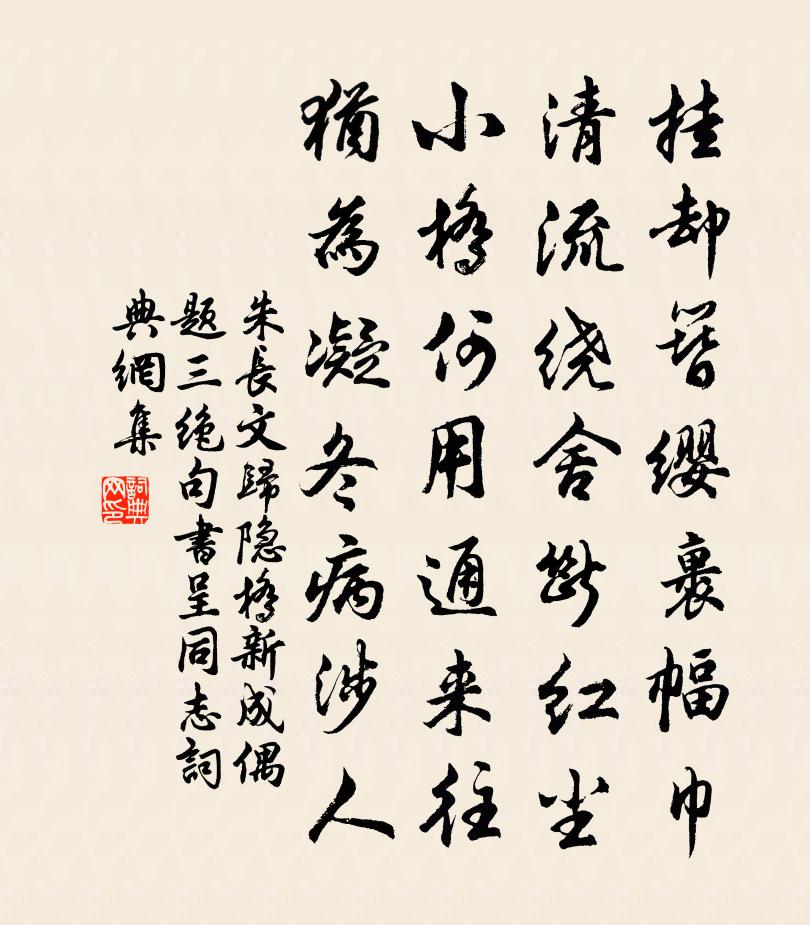 挂却簪缨裹幅巾
清流绕舍断红尘
小橋何用通来往
猶為凝冬病涉人
朱長文歸隐橋新成偶
题三绝句書呈同志詞
典網集
詞典网印